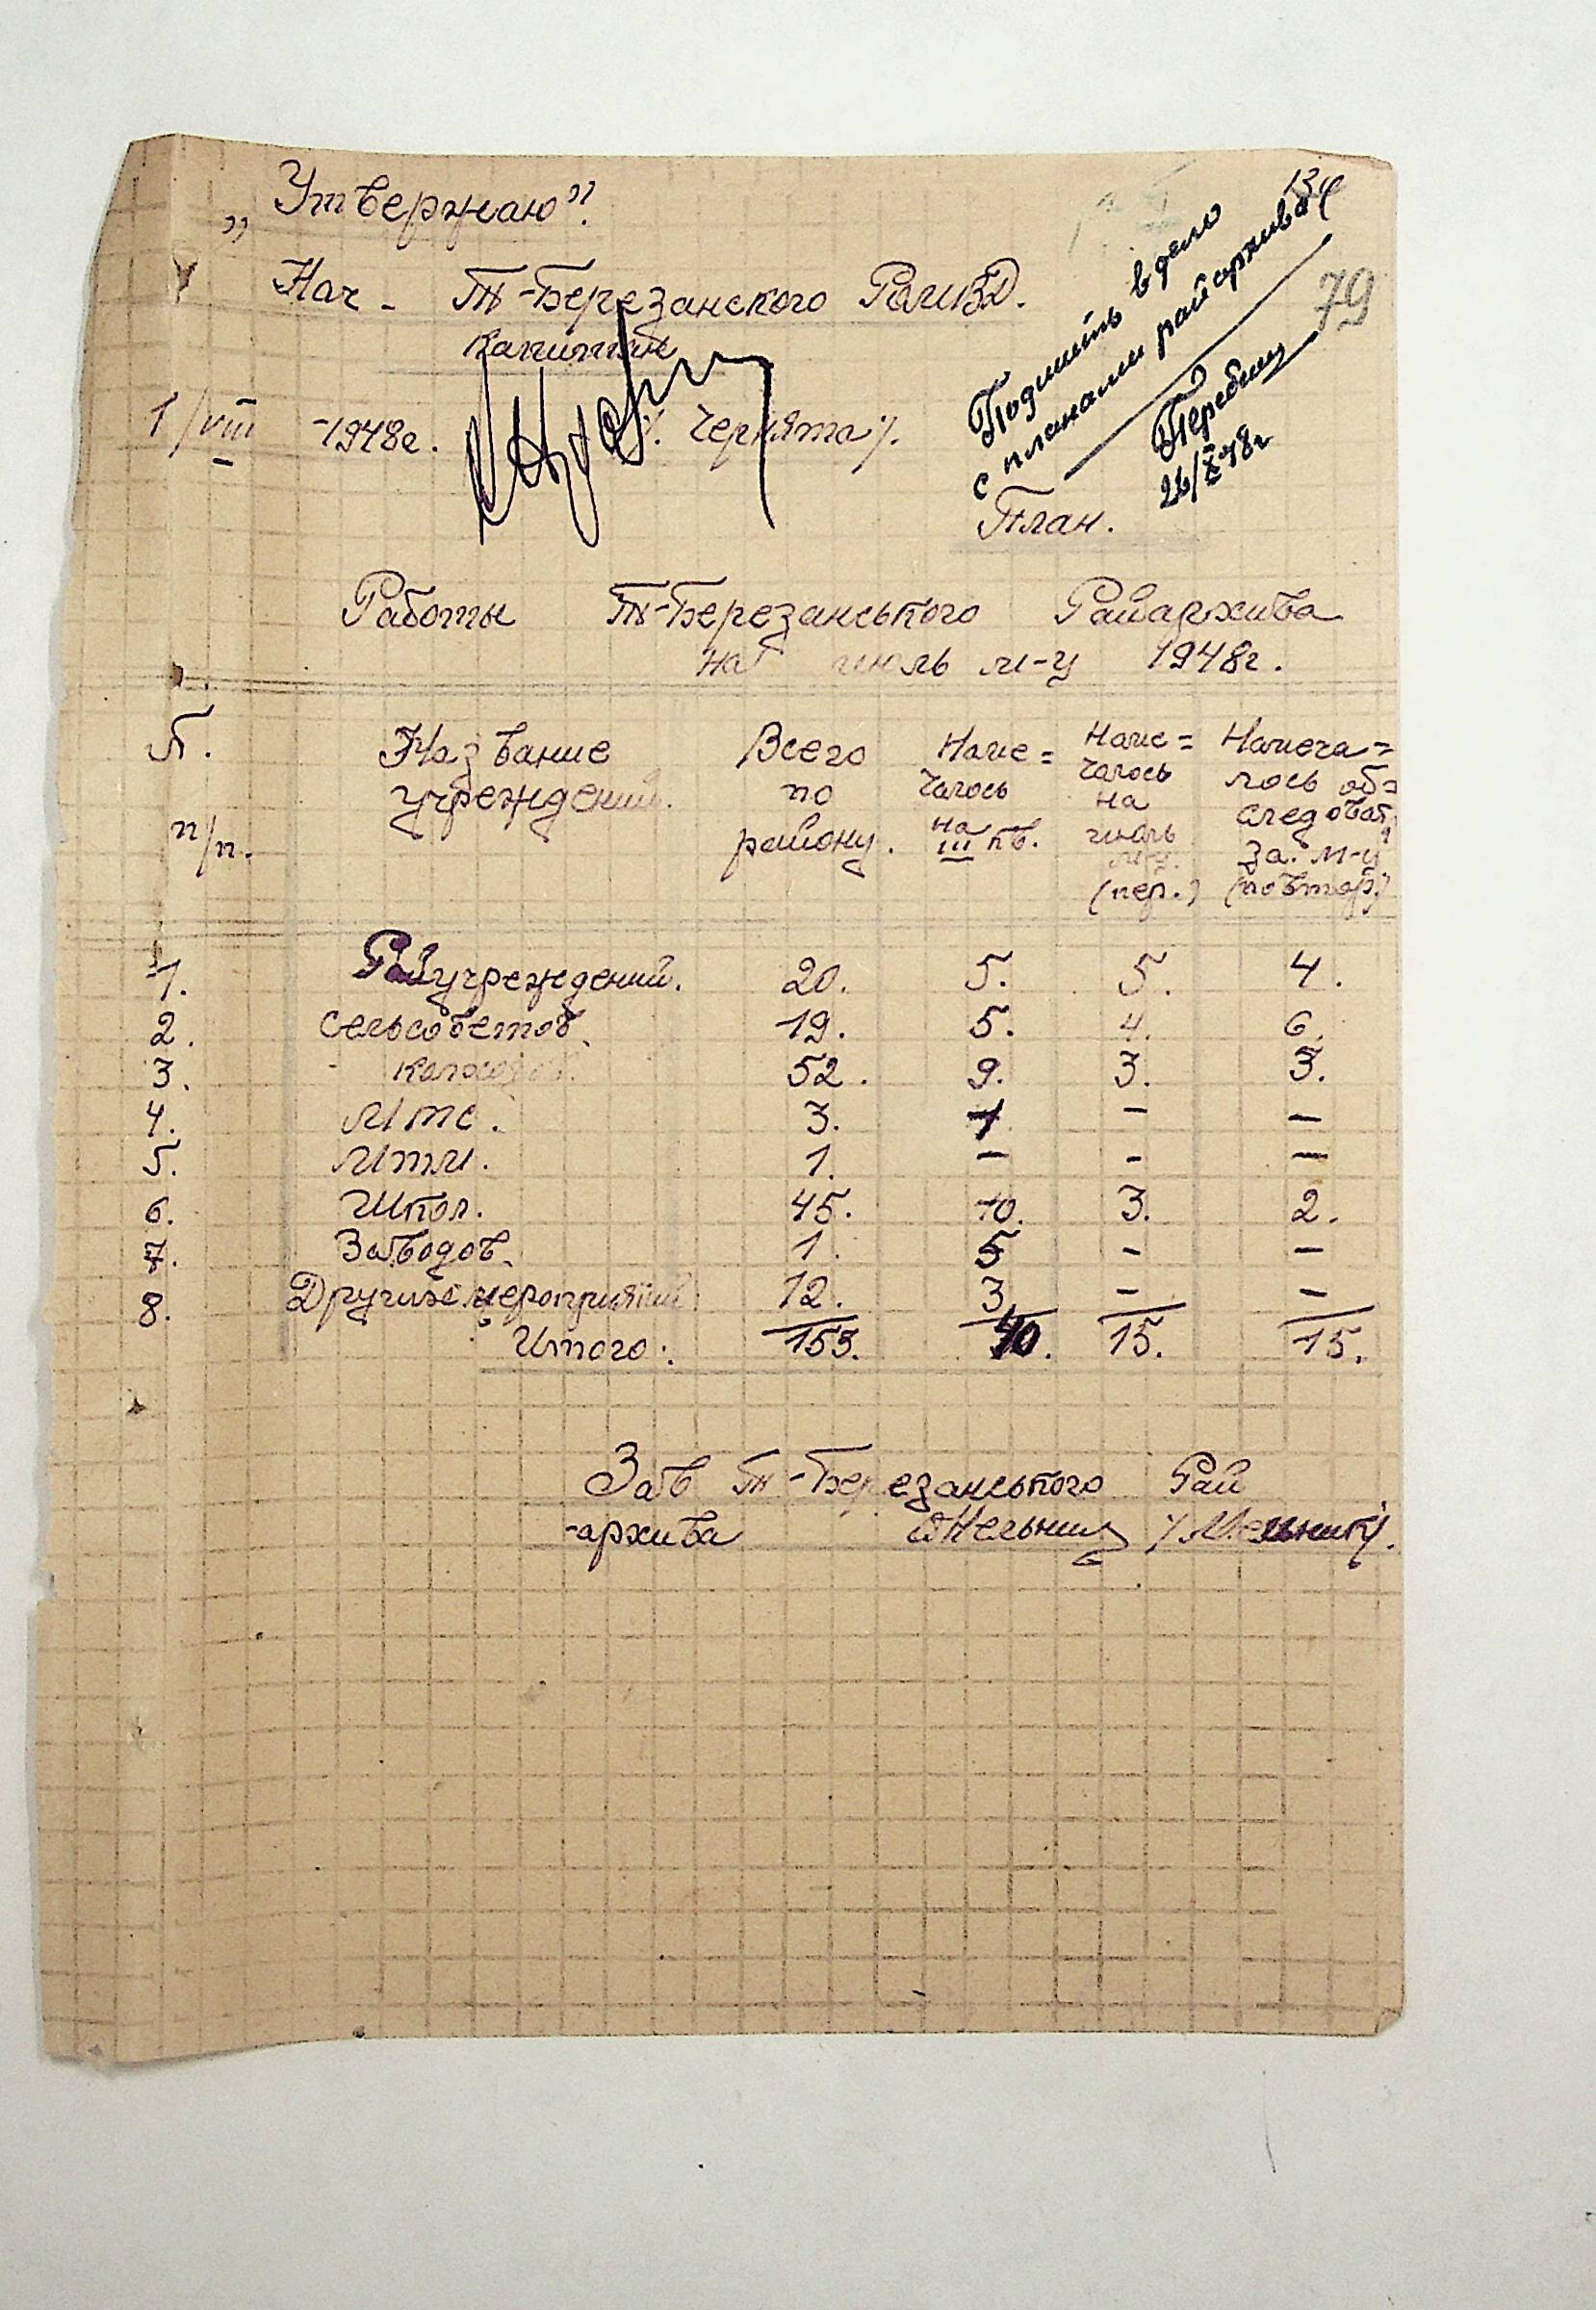 134
79
Подшить в дело
с планами райархивов
26/X 48г
„Утвержаю".
Нач - Т-Березанского РОМВД.
капитан
1/VIII -1948г. /. Чернята /.
План.
Работы Т-Березанського Райархива
на июль м-ц 1948г.
П. п/п. | Название учреждений. | Всего по району. | Наме=чалось на III кв. | Наме=чалось на июль м-ц. (пер.) | Намеча=лось об=следоват за м-ц (повтор.)
1. Райучреждений. 20. 5. 5. 4.
2. Сельсоветов. 19. 5. 4. 6.
3. - колхозов. 52. 9. 3. 3.
4. Мтс. 3. 1 - -
5. Мтм. 1. - - -
6. Школ. 45. 10. 3. 2.
7. Заводов. 1. 5 - -
8. Других мероприятий 12. 3 - -
Итого: 153. 40. 15. 15.
Зав Т-Березанського Рай
-архива Мельник / Мельник/.